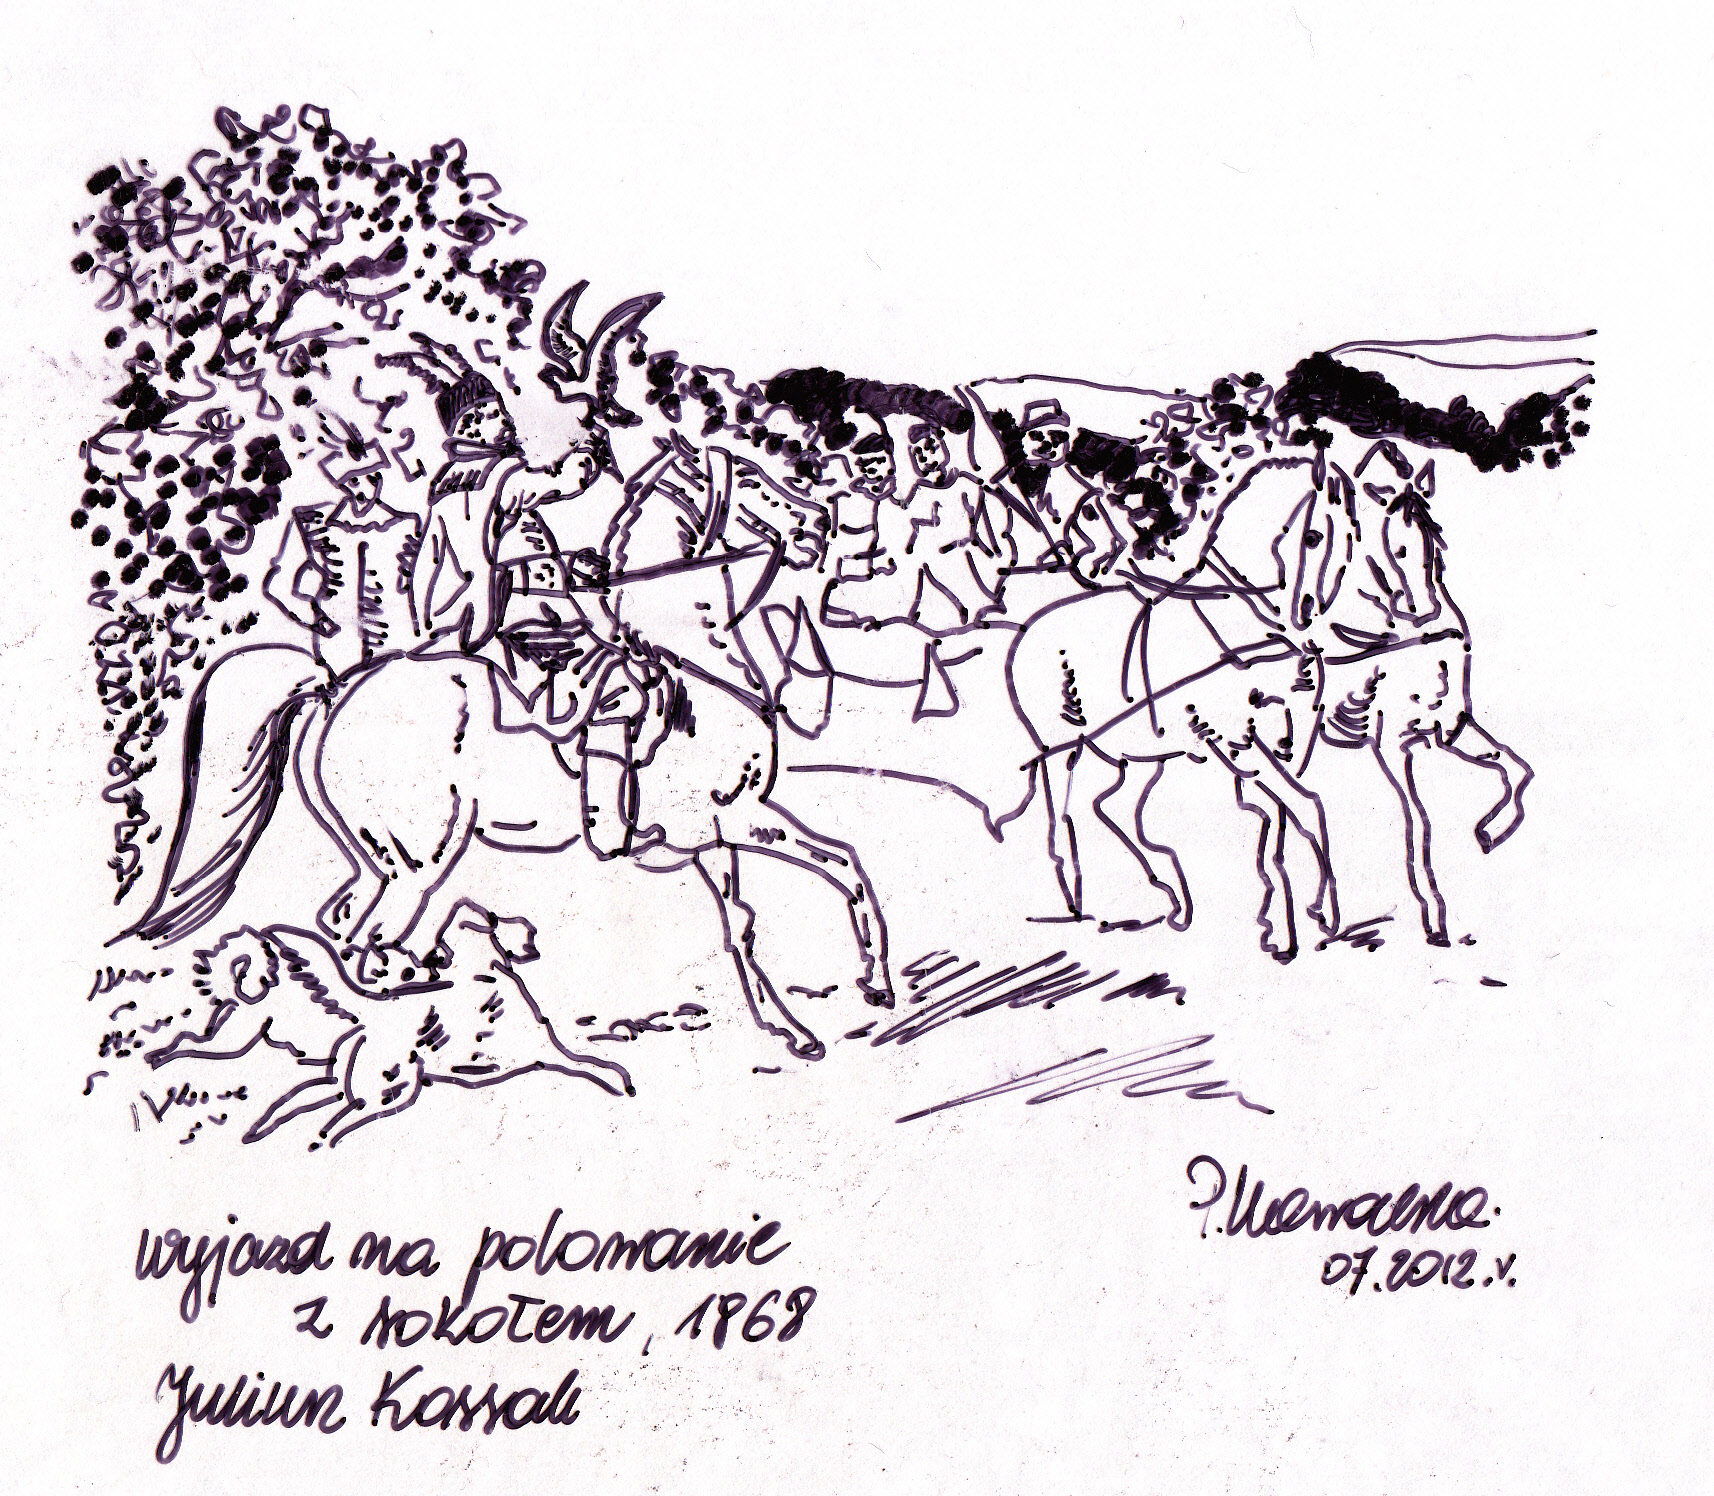 wyjazd na polowanie
z sokołem, 1868
Juliusz Kossak
P.
07.2012.r.